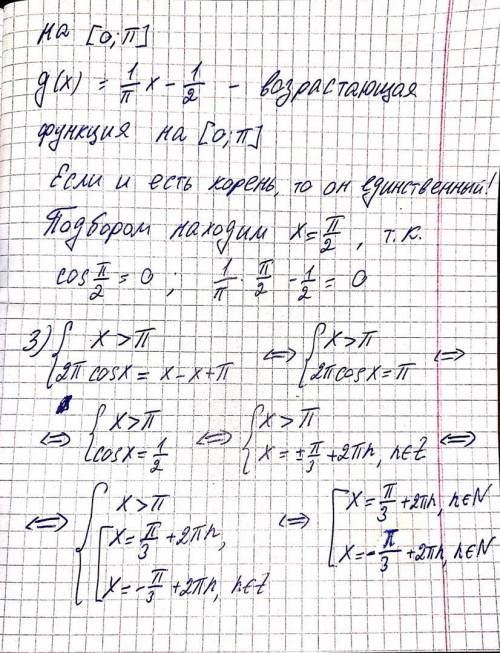 на [0;π]
g(x) = 1/π x - 1/2 - возрастающая
функция на [0;π]
Если и есть корень, то он единственный!
Подбором находим x = π/2, т.к.
cos π/2 = 0; 1/π · π/2 - 1/2 = 0
3) { x > π ; 2π cosx = x - x + π ⇔ { x > π ; 2π cosx = π ⇔
⇔ { x > π ; cosx = 1/2 ⇔ { x > π ; x = ± π/3 + 2πn, n∈Z ⇔
⇔ { x > π ; [ x = π/3 + 2πn, x = -π/3 + 2πn, n∈Z ⇔ [ x = π/3 + 2πn, n∈N ; x = -π/3 + 2πn, n∈N